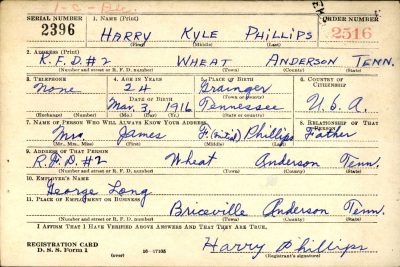 1-C-
SERIAL NUMBER 1. NAME (Print) ORDER NUMBER
2396 HARRY KYLE PHILLIPS 2516
(First) (Middle) (Last)
2. ADDRESS (Print)
R.F.D.#2 WHEAT ANDERSON TENN.
(Number and street or R. F. D. number) (Town) (County) (State)
3. TELEPHONE 4. AGE IN YEARS 5. PLACE OF BIRTH 6. COUNTRY OF CITIZENSHIP
None 24 Grainger
DATE OF BIRTH (Town or county)
Mar, 3, 1916 Tennessee U.S.A.
(Exchange) (Number) (Mo.) (Day) (Yr.) (State or country)
7. NAME OF PERSON WHO WILL ALWAYS KNOW YOUR ADDRESS 8. RELATIONSHIP OF THAT PERSON
James F. (initial) Phillips Father
(Mr., Mrs., Miss) (First) (Middle) (Last)
9. ADDRESS OF THAT PERSON
R.F.D. #2 Wheat Anderson Tenn.
(Number and street or R. F. D. number) (Town) (County) (State)
10. EMPLOYER'S NAME
George Long
11. PLACE OF EMPLOYMENT OR BUSINESS
Briceville Anderson Tenn.
(Number and street or R. F. D. number) (Town) (County) (State)
I AFFIRM THAT I HAVE VERIFIED ABOVE ANSWERS AND THAT THEY ARE TRUE.
REGISTRATION CARD
D. S. S. Form 1 (over) 16-17105 Harry Phillips
(Registrant's signature)